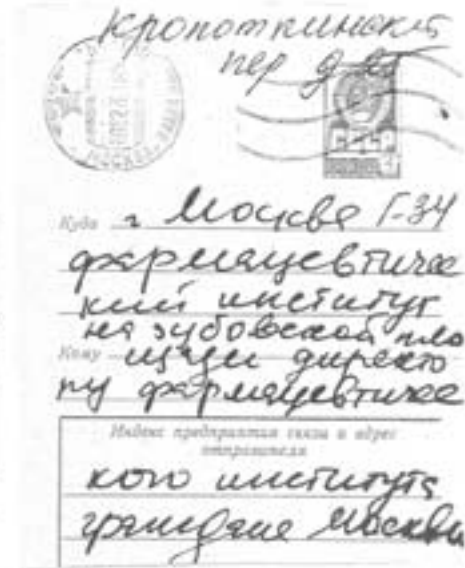 Кропоткинский
пер д
МОСКВА
Куда г Москва Г-34
фармацевтичес
кий институт
на зубовской пло
Кому щади директо
ру фармацевтичес
Индекс предприятия связи и адрес
отправителя
кого института
граждане Москвы